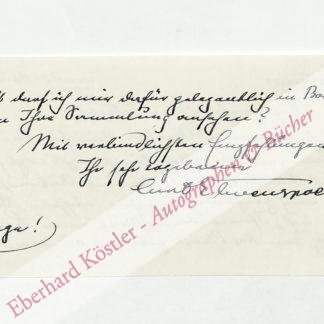 darf ich mir dafür gelegentlich in
Ihre Sammlung ansehen?
Mit verbindlichsten Empfehlungen
Ihr sehr ergebener
Curt Elwenspoek
Eberhard Köstler - Autographen & Bücher